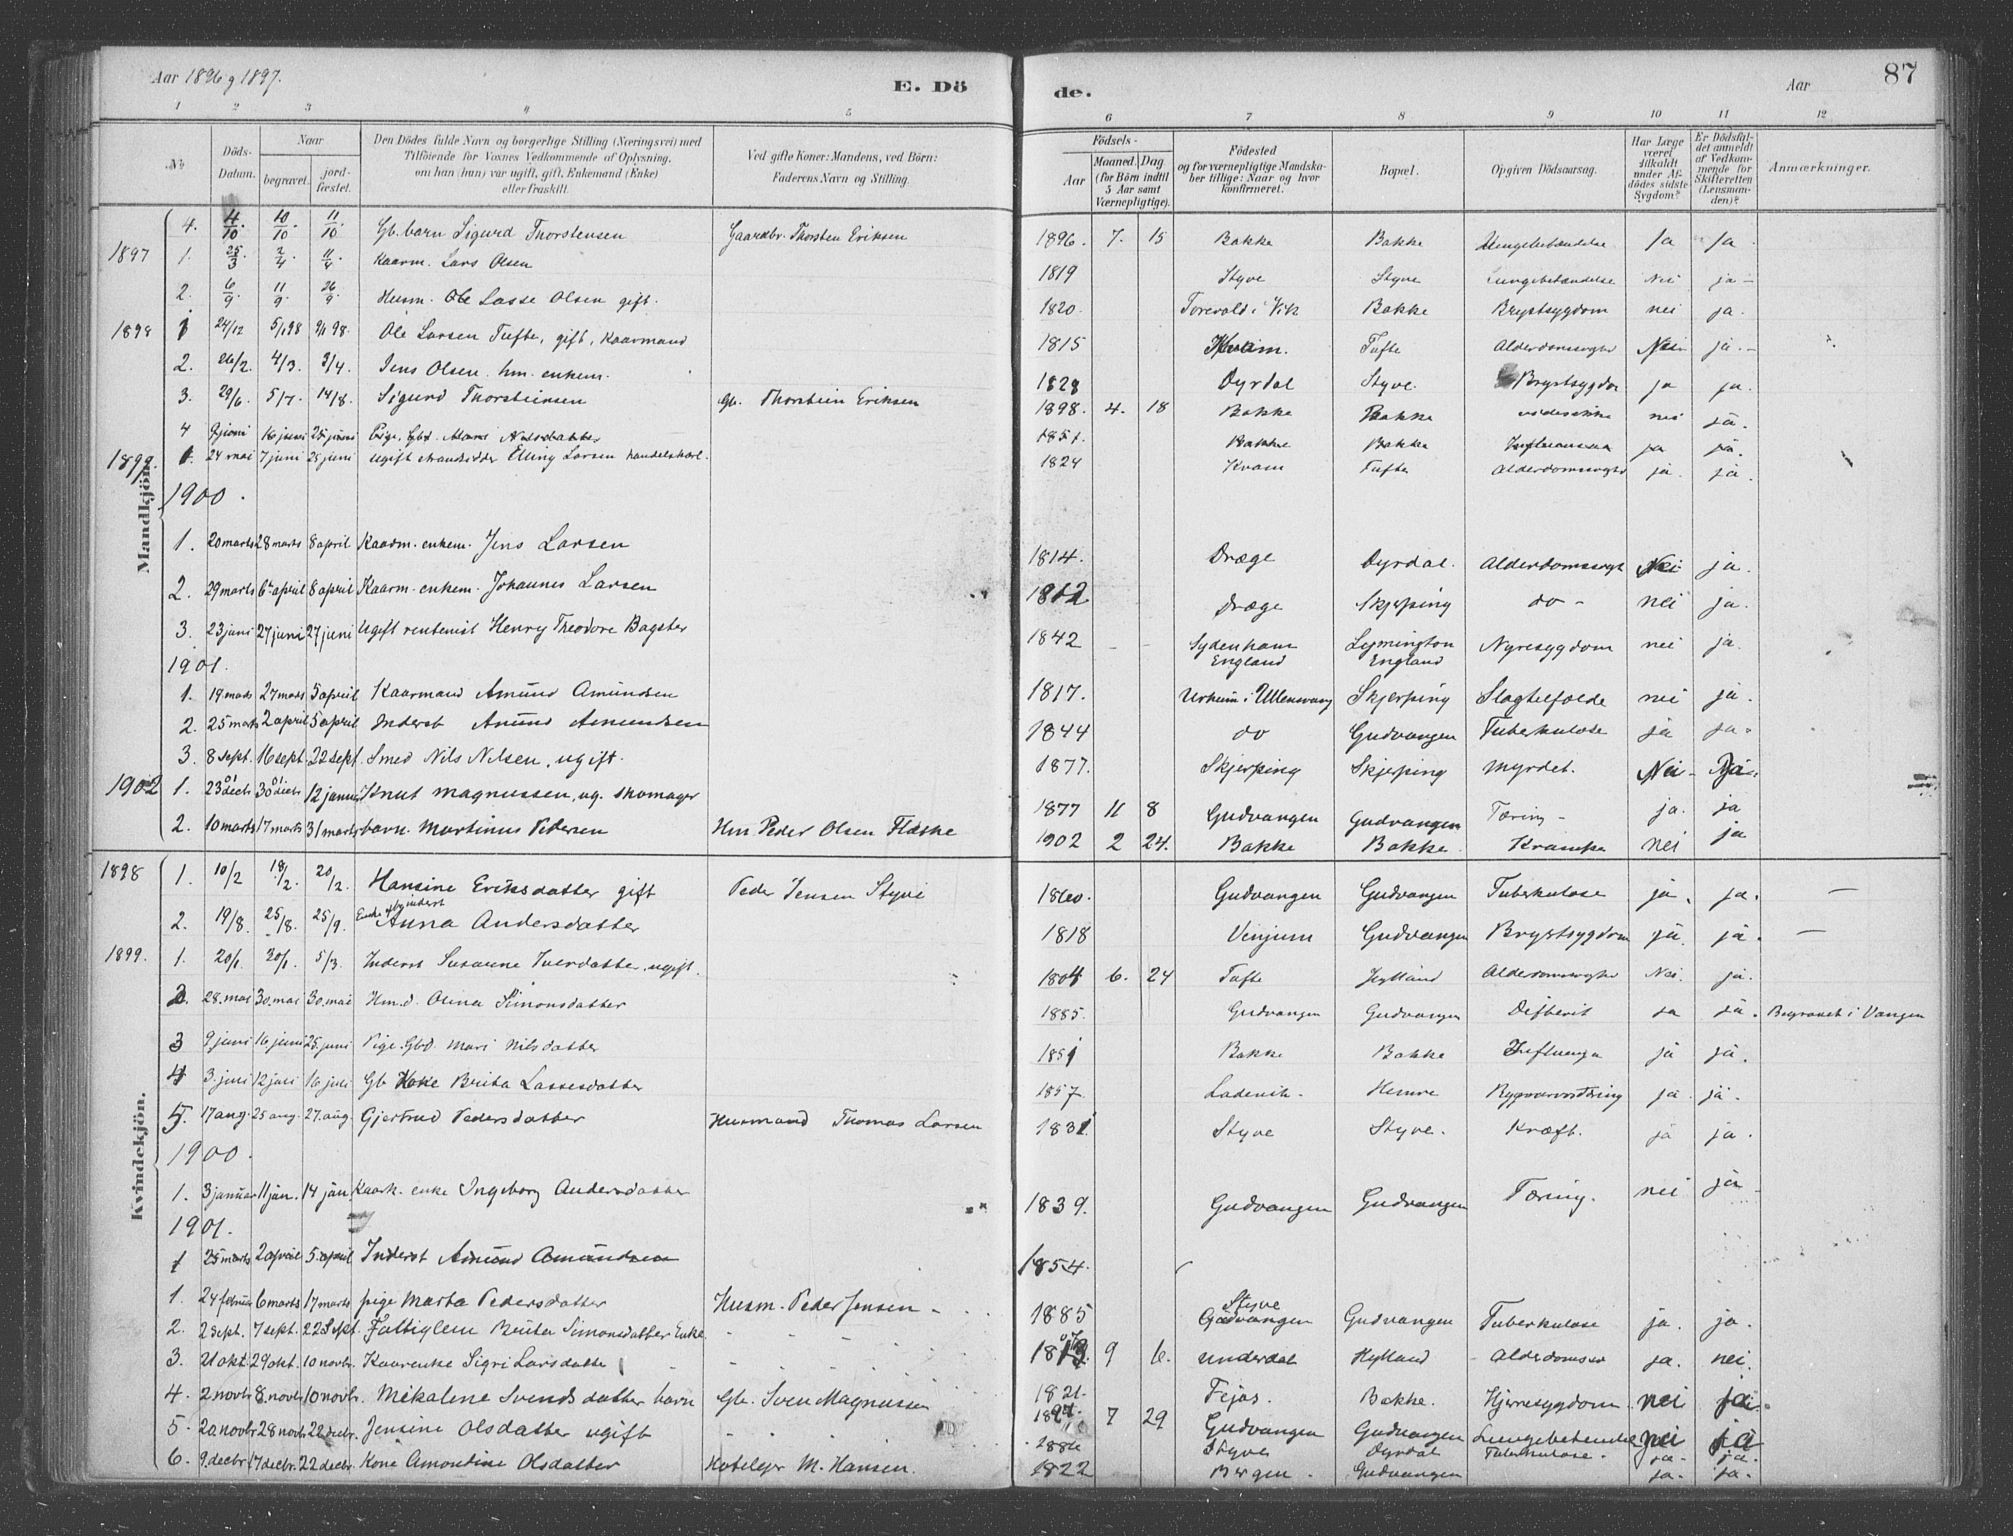 Aar 1896 g 1897.
E. Dö
de.
Aar
87
1 2 3 4 5 6 7 8 9 10 11 12
No
Döds-Datum.
Naar
begravet.
jordfæstet.
Den Dödes fulde Navn og borgerlige Stilling (Næringsvei) med Tilföiende for Voxnes Vedkommende af Oplysning, om han (hun) var ugift, gift, Enkemand (Enke) eller fraskilt.
Ved gifte Koner: Mandens, ved Börn: Faderens Navn og Stilling.
Födsels-
Aar
Maaned. Dag (for Börn indtil 5 Aar samt Værnepligtige).
Födested og for værnepligtige Mandskaber tillige: Naar og hvor konfirmeret.
Bopæl.
Opgiven Dödsaarsag.
Har Læge været tilkaldt under Afdödes sidste Sygdom?
Er Dödsfaldet anmeldt af Vedkommende for Skifteretten (Lensmanden)?
Anmærkninger.
Mandkjön.
4. 4/10. 10/10. 11/10. Gb. barn Sigurd Thorstensen Gaardbr. Thorsten Eriksen 1896. 7. 15 Bakke Bakke Lungebetændelse Ja Ja.
1897 1. 25/3 2/4 11/4. Kaarm. Lars Olsen 1819 Styve Styve Lungebetændelse Nei ja -
2. 6/9. 11/9. 26/9. Husm. Ole Lasse Olsen gift. 1820. Torevald i Vik Bakke Brystsygdom nei ja.
1898 1 24/12 5/1 98 9/1 98. Ole Larsen Tufte, gift, Kaarmand 1815 Kvam. Tufte Alderdomssvaghed Nei ja. -
2. 26/2. 4/3. 3/4. Jens Olsen. hm. enkem. 1828 Dyrdal Styve. Brystsygdom ja ja.
3. 29/6. 5/7. 14/8. Sigurd Thorsteinsen Gb. Thorstein Eriksen 1898. 4. 18 Bakke Bakke nei ja.
4 9 juni 16 juni 25 juni Pige. Gbd. Nilsdatter 1851. Bakke Bakke Influensa ja ja.
1899. 1. 24 mai 7 juni 25 juni ugift Elling Larsen handelskarl. 1824 Kvam Tufte Alderdomssvaghed ja. ja.
1900.
1. 20 marts 28 marts 8 april Kaarm. enkem. Jens Larsen 1814. Dræge Dyrdal. Alderdomssvagh Nei ja.
2. 29 marts 6te april 8 april Kaarm. enkem. Johannes Larsen 1812 Dræge Skjerping do - nei ja.
3. 23 juni 27 juni 27 juni Ugift rentenist Henry Theodore Bagster 1842 - - Sydenham England Lymington England Nyresygdom nei ja.
1901.
1. 19 marts 27 marts 5 april Kaarmand Amund Amundsen 1817. Urheim i Ullensvang Skjerping Slagtilfælde nei ja.
2. 25 marts 2 april 5 april Inderst Amund Amundsen 1844 do Gudvangen Tuberkulose ja ja.
3. 8 sept. 16 sept. 22 sept. Smed Nils Nilsen, ugift. 1877. Skjerping Skjerping myrdet. Nei - Ja.
1902 1. 23 decb 30 decb 12 januar Knut Magnussen, ug. skomager 1877 11 8 Gudvangen Gudvangen Tæring - ja. ja
2. 10 marts 17 marts 31 marts barn. Martinus Pedersen Hm. Peder Olsen Flaske 1902 2 24. Bakke Bakke. Krampe nei ja
Kvindekjön.
1898 1. 10/2 18/2. 20/2. Hansine Eriksdatter gift Peder Jensen Styvi 1860. Gudvangen Gudvangen Tuberkulose ja. ja. -
2. 19/8. 25/8. 25/9. Enke Anna Andersdatter 1818 Vinjum Gudvangen Brystsygdom ja. ja. -
1899. 1. 20/1. 30/1. 5/3. Inderst Susanne Iverdatter, ugift. 1804 6. 24 Tufte Hylland Alderdomssvaghed Nei. ja.
2. 28. mai 30. mai 30. mai Hm.d. Anna Simonsdatter 1885. Gudvangen Gudvangen Difterit ja ja. Begravet i Vangen
3 9 juni 16 juni 25. juni Pige. Gbd. Mari Nilsdatter 1851 Bakke Bakke Influenza ja ja.
4 3. juli 12 juli 16 juli Gb Kone Brita Lassesdatter 1857. Ladevik. Hemre ja. ja.
5. 17 aug. 25 aug. 27. aug. Gjertrud Pedersdatter Husmand Thomas Larsen 1831. Styve Styve. Kræft. ja ja.
1900.
1. 3 januar 11 jan. 14 jan. Kaark. enke Ingeborg Andersdatter 1839. Gudvangen Gudvangen Tæring. nei ja
1901.
1 25 marts 2 april 5. april Inderst Amund Amundsen 1854.
1. 24 februar 6 marts 17 marts pige Marta Pedersdatter Husm. Peder Jensen - 1885 Styve Gudvangen Gudvangen Tuberkulose ja. ja.
2. 2 sept. 7 sept. 22 sept. Fattiglem Brita Simonsdatter Enke 9 6. Underdal Hylland Alderdomssv ja. nei.
3. 21 okt. 29 okt. 10 novbr. Kaarenke Sigri Larsdatte 1821. Fejos. Bakke. Hjertesygdom nei ja.
4. 2 novbr 8. novbr 10 novbr. Mikaline Svendsdatter barn Gb. Sven Magnussen 1897. 7 29 Gudvangen Gudvangen Lungebetændelse nei ja
5. 20 novbr 28 novbr 22 decbr. Jensine Olsdatter ugift Styve Dyrdal Tuberkulose. ja. ja.
6. 9. decbr 17 decbr. 22 decbr. Kone Amontine Olsdatter Hotelejer M. Hansen. 1822 Bergen. Gudvangen ja. ja.